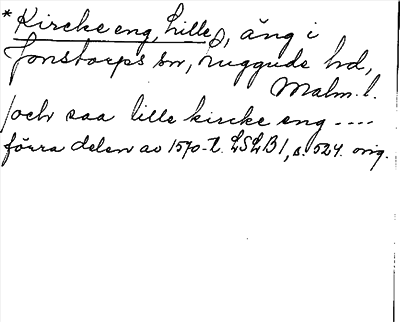 *Kircke eng, Lille, äng i
Jonstorps sn, Luggude hd,
Malm. l.
/och saa lille kircke eng ----
förra delen av 1570-t. LSLB 1, s. 524. orig.